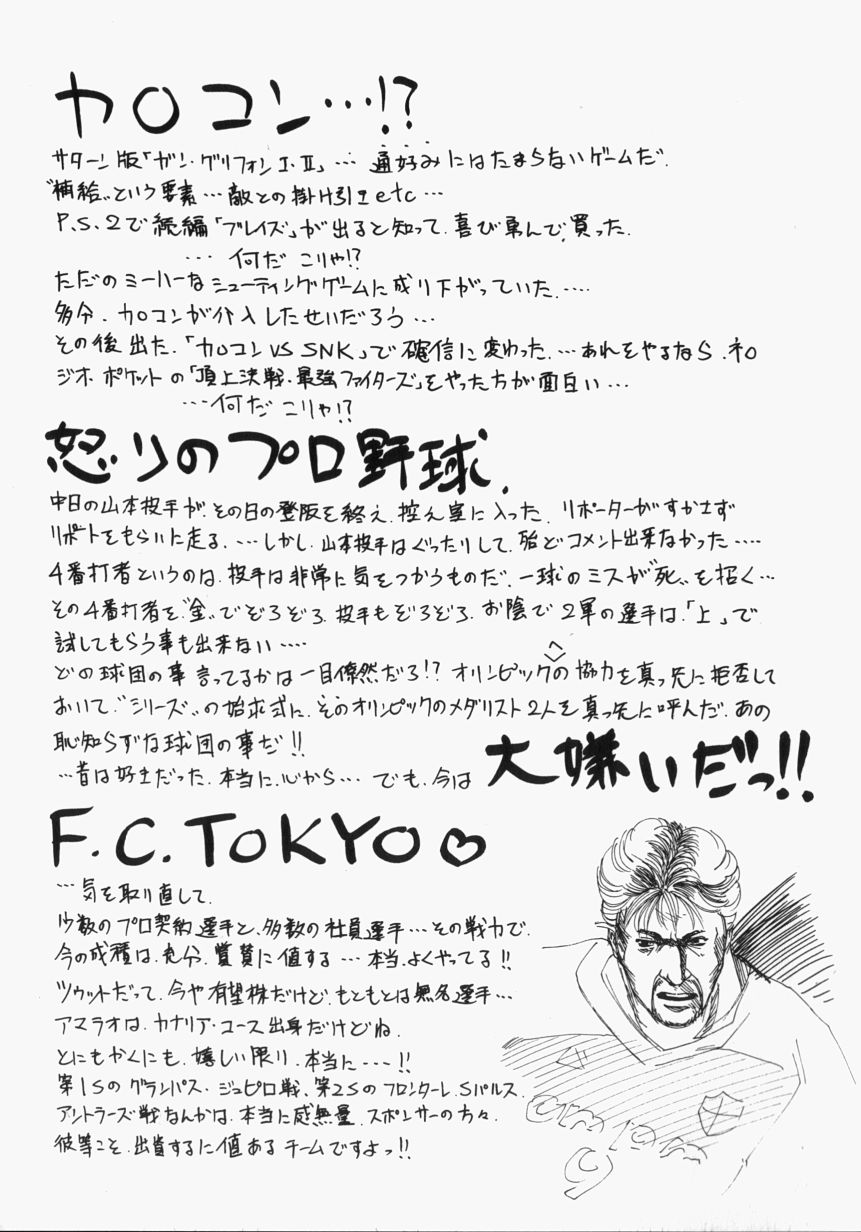 カロコン…!?
サターン版「ガン・グリフォンI・II」… 通好みにはたまらないゲームだ.
"補給〟という要素…敵との掛け引きetc…
P.S.2で続編「ブレイズ」が出ると知って.喜び勇んで.買った.
… 何だ こりゃ!?
ただのミーハーなシューティングゲームに成り下がっていた.….
多分.カロコンが介入したせいだろう…
その後出た.「カロコンVS SNK」で確信に変わった.…あれをやるなら.ネロ
ジオ.ポケットの「頂上決戦.最強ファイターズ」をやった方が面白い…
…何だ こりゃ!?
怒りのプロ野球.
中日の山本投手が.その日の登板を終え.控え室に入った. リポーターがすかさず
リポートをもらいに走る.…しかし.山本投手はぐったりして.殆どコメント出来なかった….
4番打者というのは.投手は非常に気をつかうものだ.一球のミスが"死〟を招く…
その4番打者を"金〟でぞろぞろ.投手もぞろぞろ.お陰で2軍の選手は.「上」で
試してもらう事も出来ない….
どの球団の事言ってるかは一目僚然だろ!? オリンピックへの協力を真っ先に拒否して
おいて."シリーズ〟の始求式に.そのオリンピックのメダリスト2人を真っ先に呼んだ.あの
恥知らずな球団の事だ!!
…昔は好きだった.本当に.心から… でも.今は 大嫌いだっ!!
F.C.TOKYO♡
…気を取り直して.
少数のプロ契約選手と.多数の社員選手…その戦力で.
今の成種は.充分.賞賛に値する…本当.よくやってる!!
ツゥットだって.今や有望株だけど.もともとは無名選手…
アマラオは.カナリア・ユース出身だけどね.
とにもかくにも.嬉しい限り.本当に…!!
第1Sのグランパス・ジュビロ戦、第2Sのフロンターレ.Sパルス.
アントラーズ戦なんかは.本当に感無量.スポンサーの方々.
彼等こそ.出資するに値あるチームですよっ!!
am pm
9